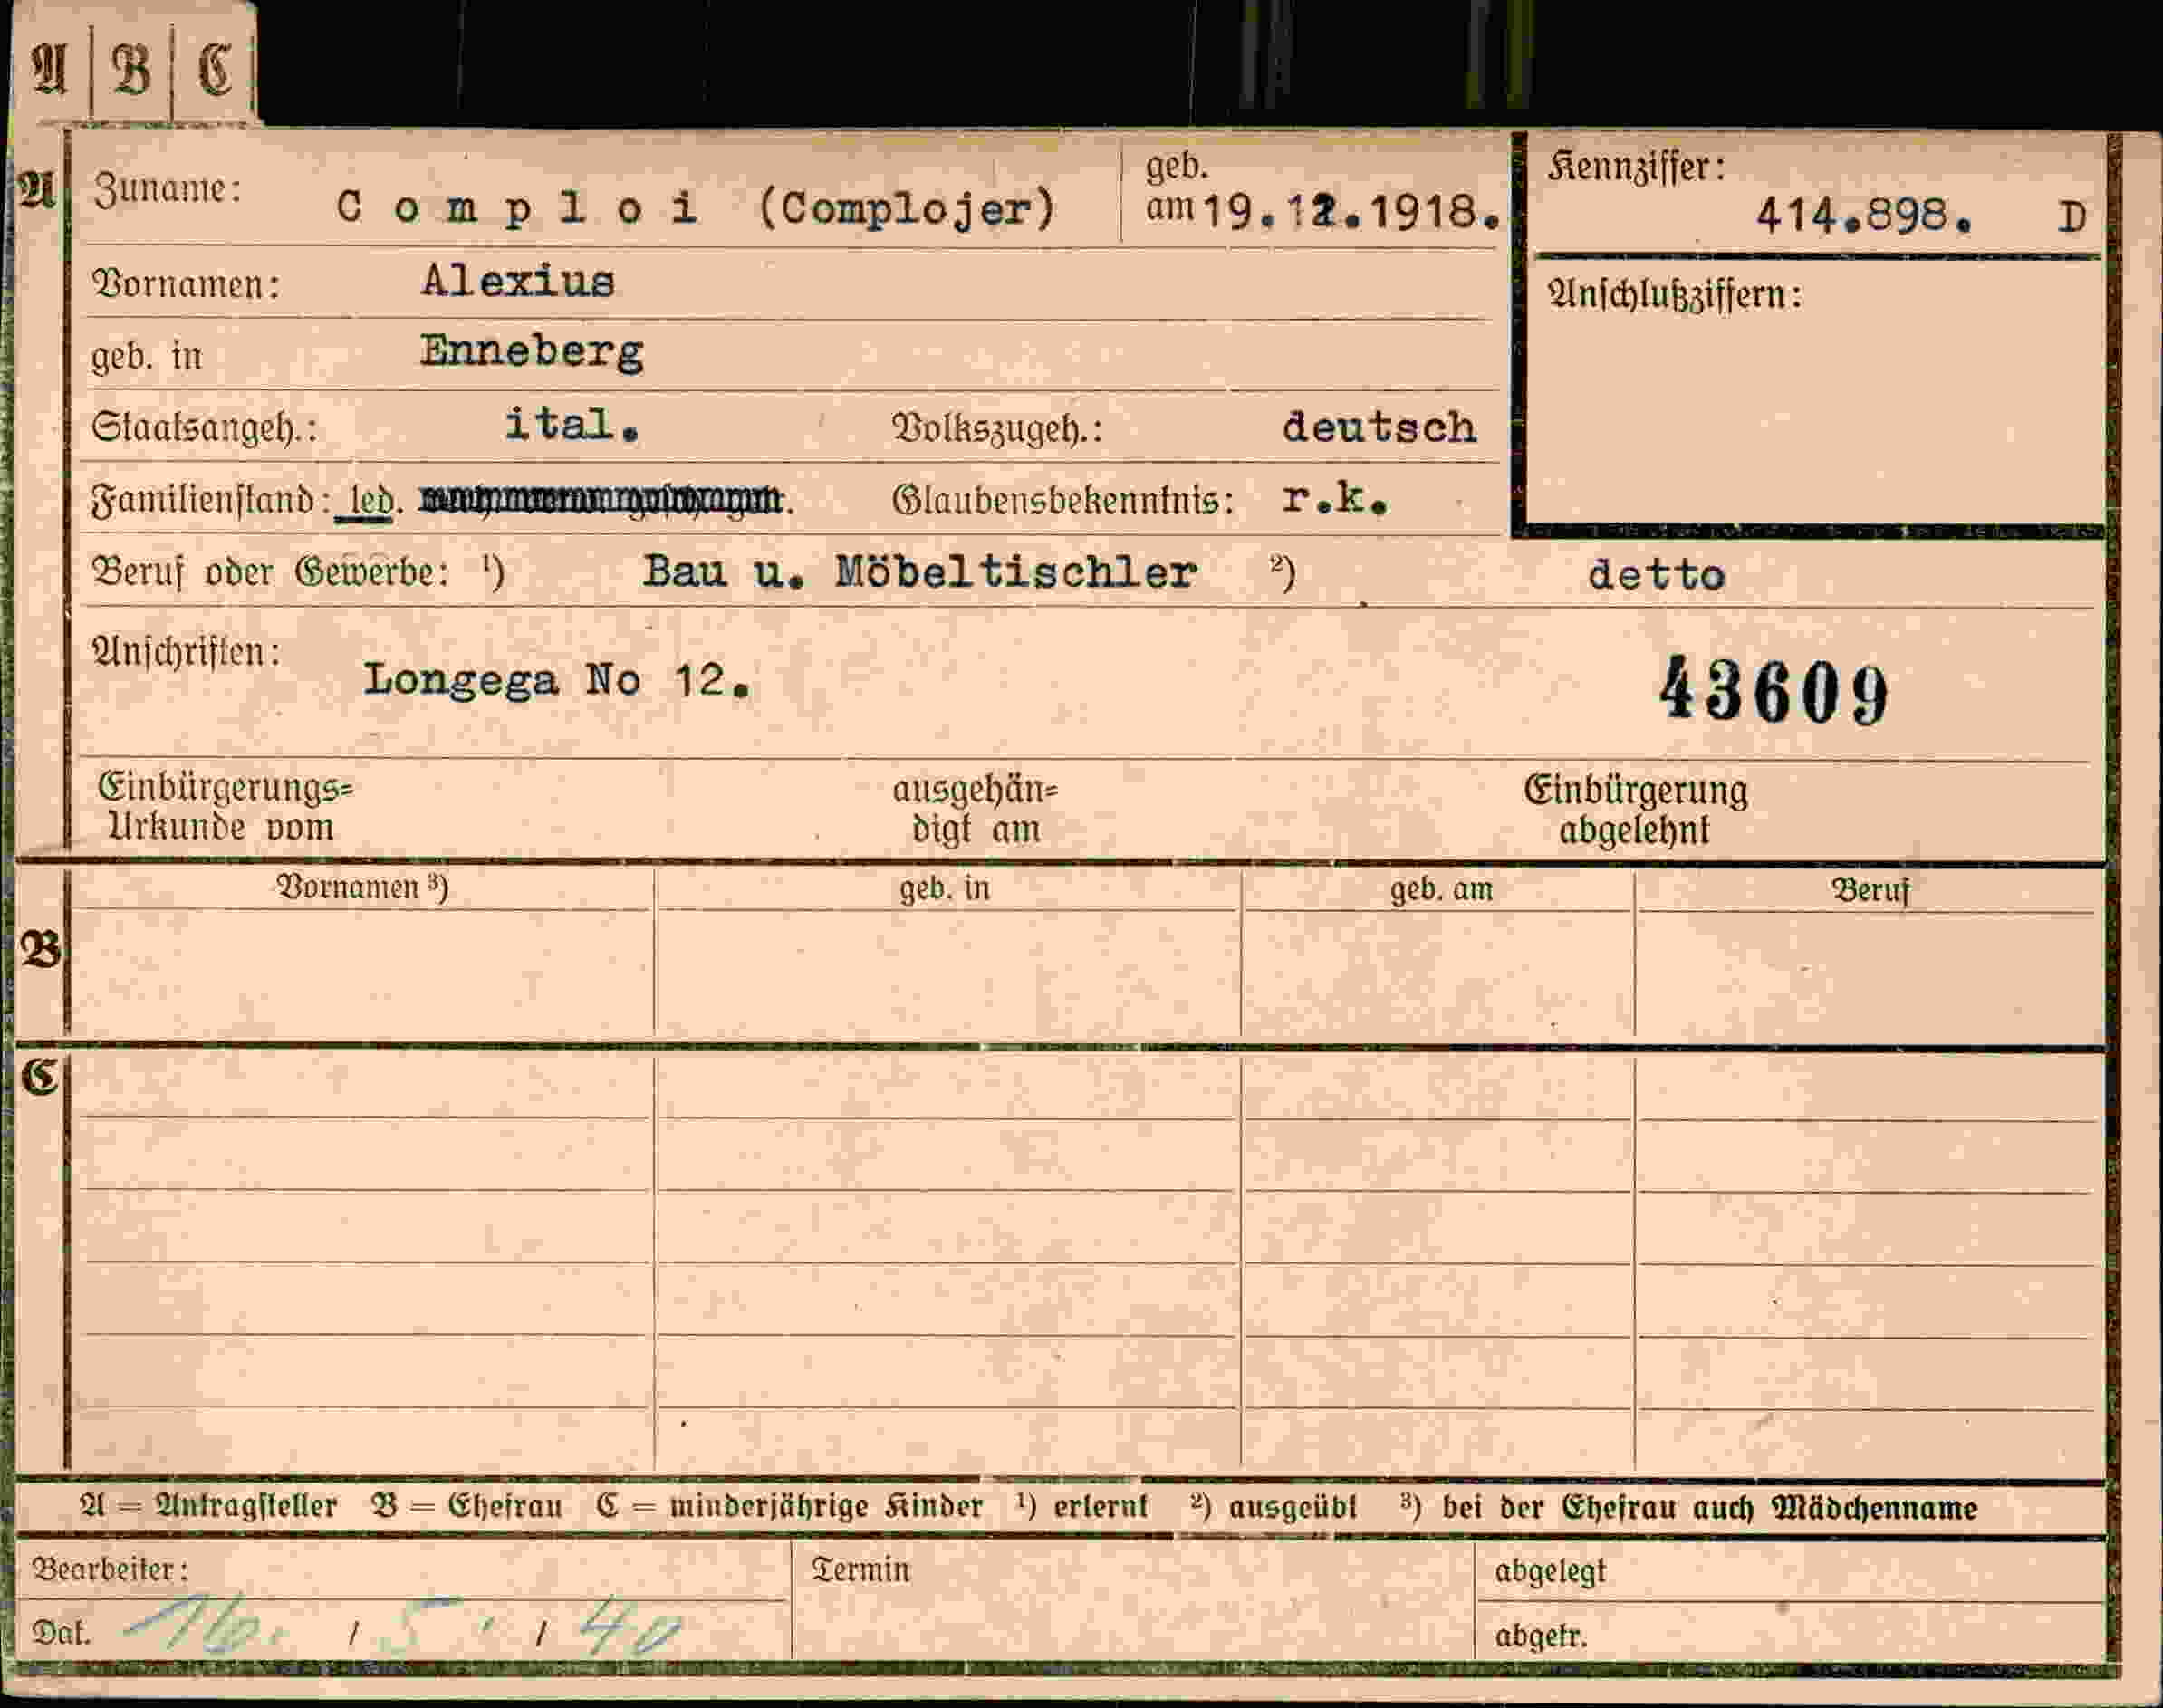 A | B | C
A Zuname: Comploi (Complojer) geb. am 19.12.1918. Kennziffer: 414.898. D
Vornamen: Alexius Anschlußziffern:
geb. in Enneberg
Staatsangeh.: ital. Volkszugeh.: deutsch
Familienstand: led. Glaubensbekenntnis: r.k.
Beruf oder Gewerbe: ¹) Bau u. Möbeltischler ²) detto
Anschriften: Longega No 12. 43609
Einbürgerungs= ausgehän= Einbürgerung
Urkunde vom digt am abgelehnt
Vornamen ³) geb. in geb. am Beruf
B
C
A = Antragsteller B = Ehefrau C = minderjährige Kinder ¹) erlernt ²) ausgeübt ³) bei der Ehefrau auch Mädchenname
Bearbeiter: Termin abgelegt
Dat. 16. / 5 / 40 abgetr.